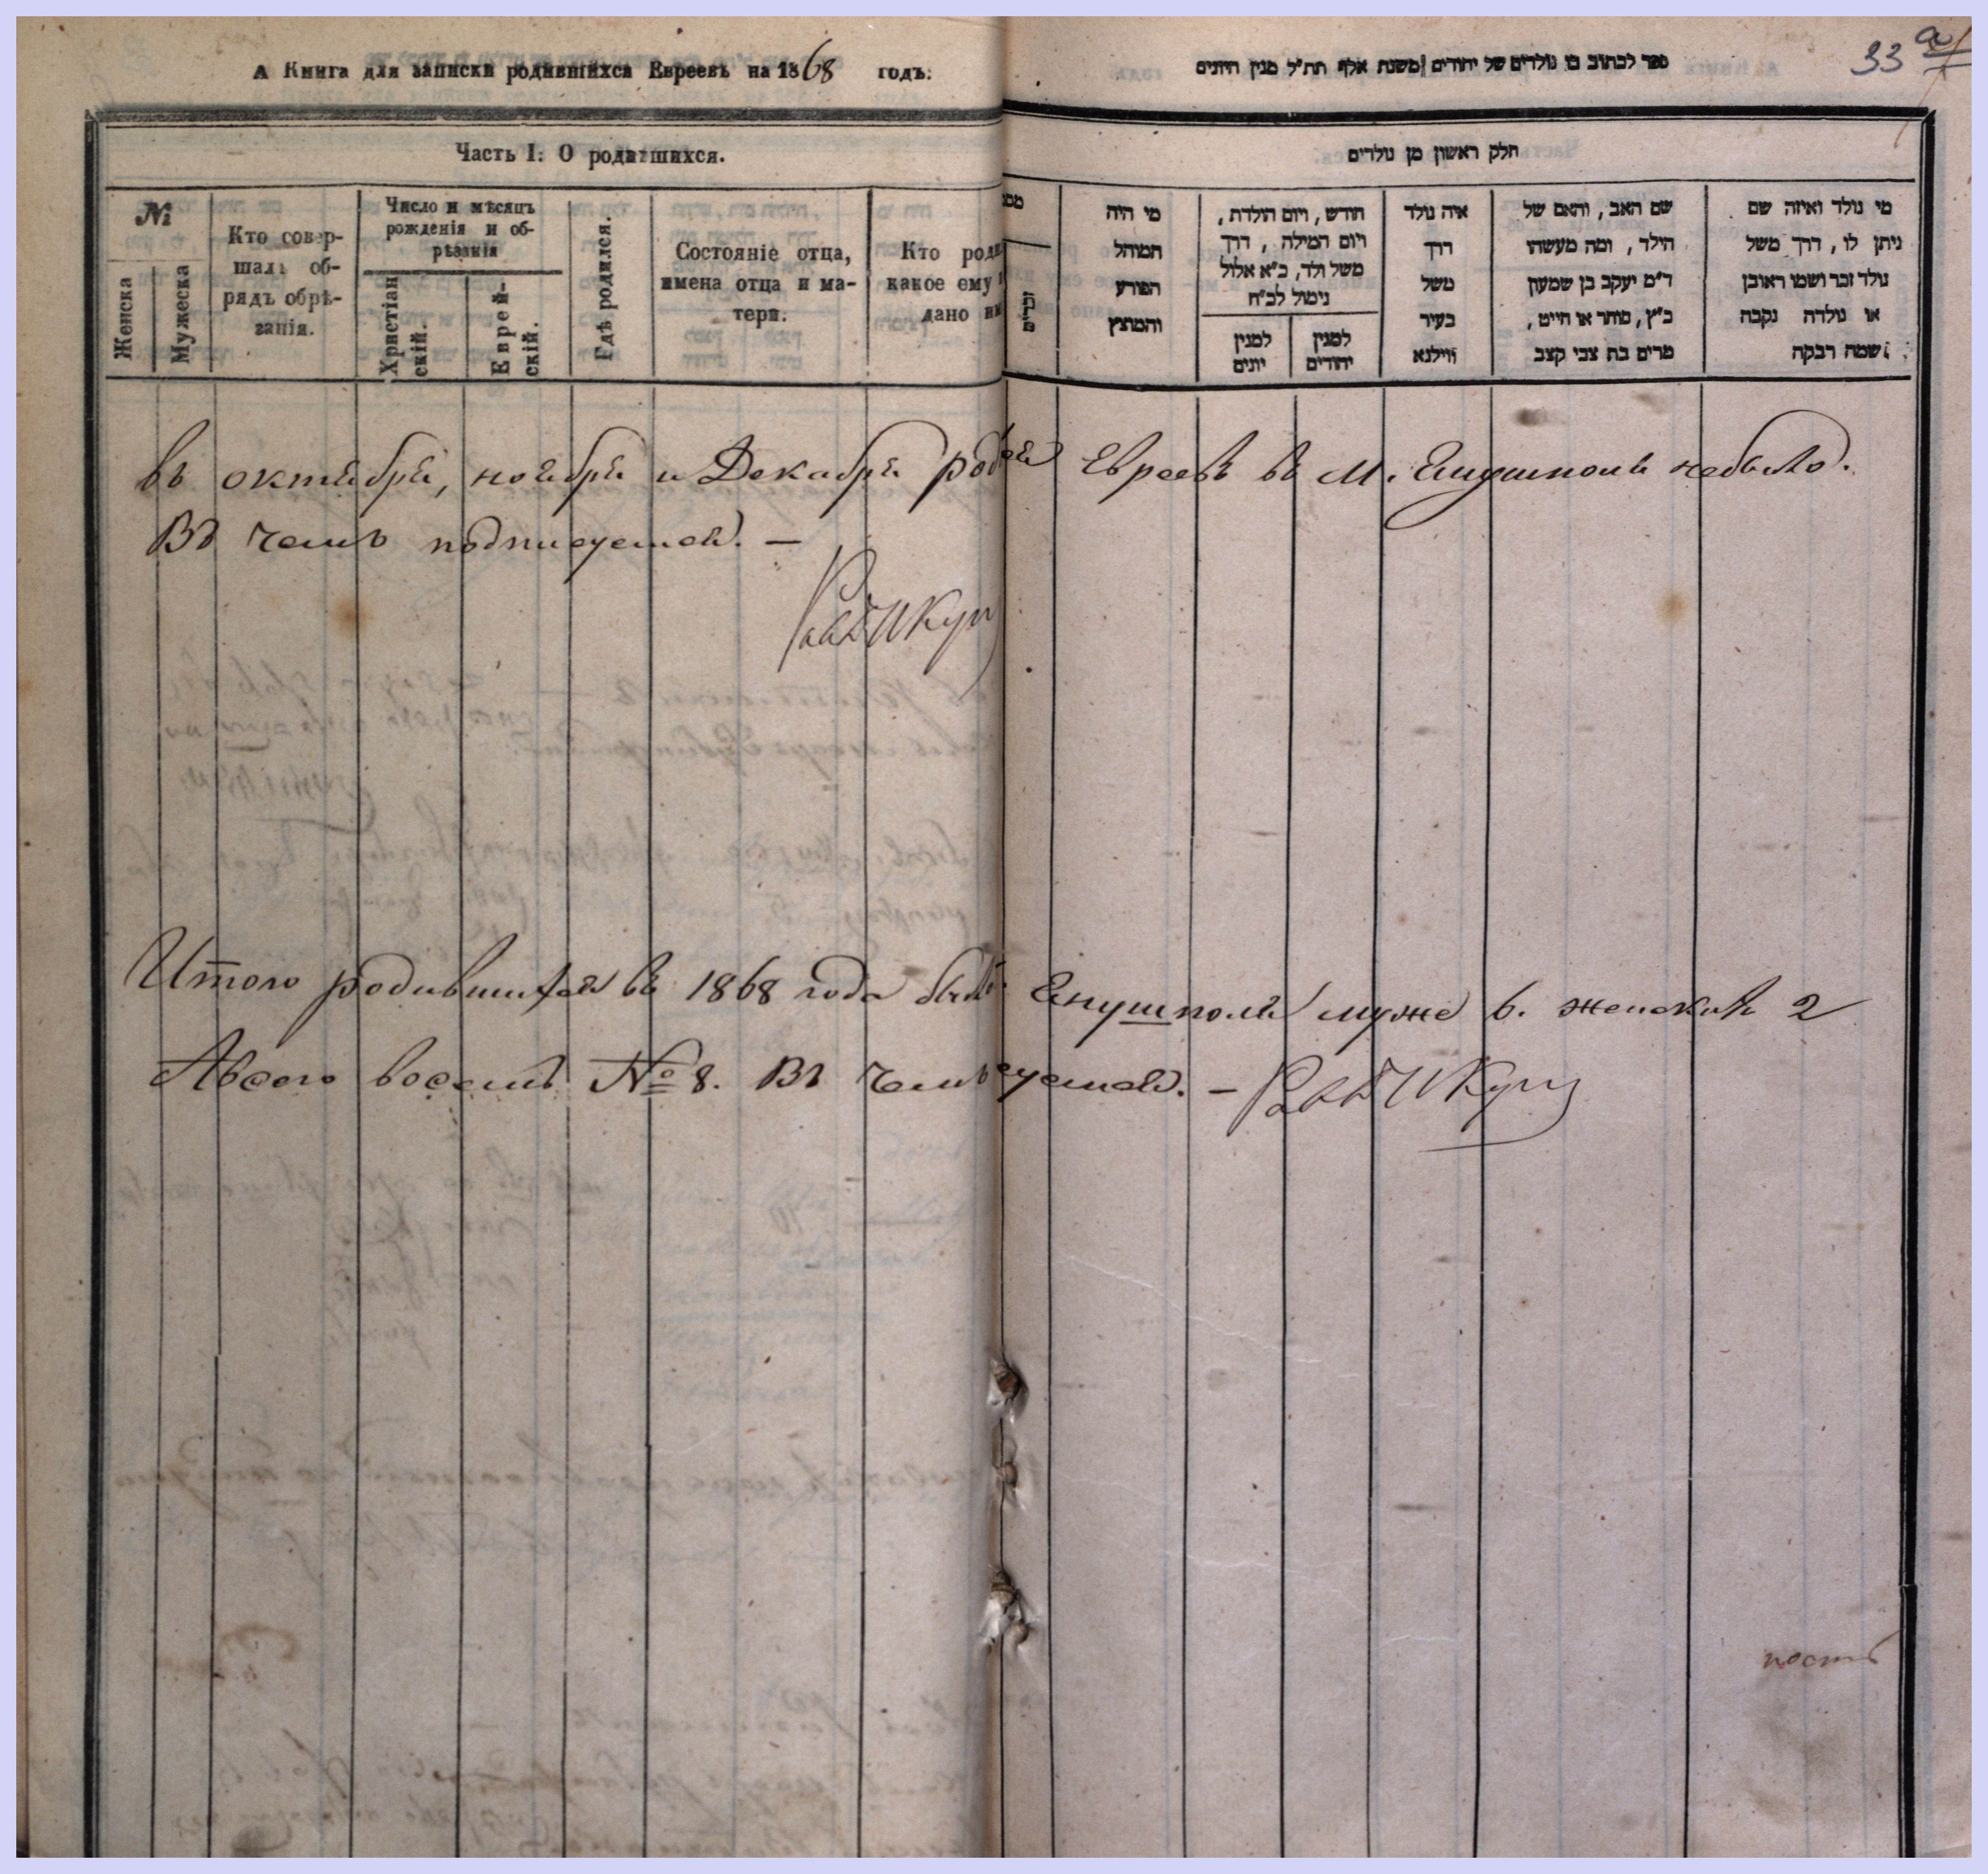 А Книга для записки родившихся Евреевъ на 1868 годъ.
ספר לכתוב בו נולדים של יהודים משנת אלף תת״ל מנין היונים
33 а
Часть I: О родившихся.
חלק ראשון מן נולדים
№
Женска
Мужеска
Кто совер-
шалъ об-
рядъ обрѣ-
занія.
Число и мѣсяцъ
рожденія и об-
рѣзанія
Христіан
скій.
Еврей-
скій.
Гдѣ родился.
Состояніе отца,
имена отца и ма-
тери.
Кто роди
какое ему
дано им
זכרים
מי היה
המוהל
הפורע
והמוצץ
חודש, ויום הולדת,
ויום המילה, דרך
משל ולד, כ״א אלול
נימול לכ״ח
למנין
יהודים
למנין
יונים
איה נולד
דרך
משל
בעיר
ווילנא
שם האב, והאם של
הילד, ומה מעשהו
ד״מ יעקב בן שמעון
כ״ץ, סוחר או חייט,
מרים בת צבי קצב
מי נולד ואיזה שם
ניתן לו, דרך משל
נולד זכר ושמו ראובן
או נולדה נקבה
שמה רבקה
въ октябрѣ, ноябрѣ и Декабрѣ Евреевъ въ М. Енушполѣ небыло.
Въ чемъ подписуемся. —
Итого родившихся въ 1868 года Енушполѣ муже 6. женскихъ 2
Авсего восемъ № 8. Въ чемъ —